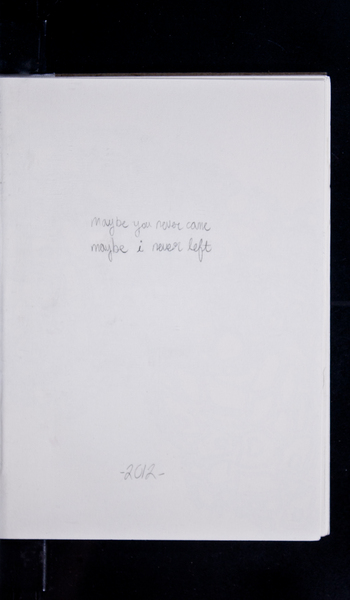 maybe you never came
maybe i never left
-2012-